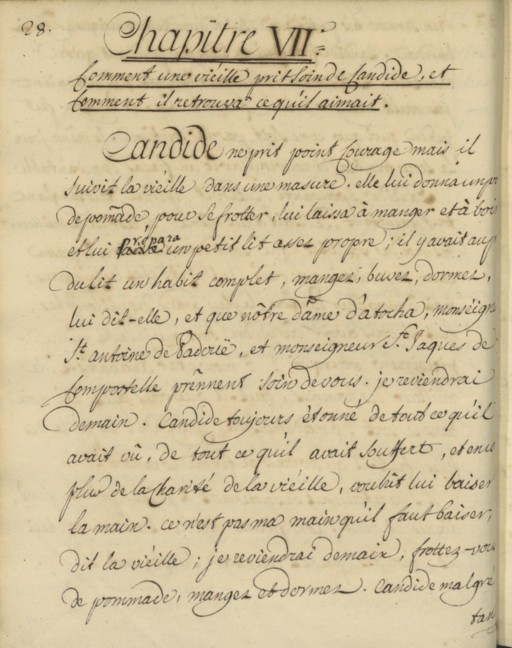 28.
Chapitre VII.e
Comment une vieille prit soin de Candide, et
Comment il retrouva ce qu'il aimait.
Candide ne prit point Courage mais il
suivit la vieille dans une masure. elle lui donna un po
de pomade, pour se frotter, lui laissa à manger et à boi
prépara
et lui un petit lit assez propre; il y avait aup
du lit un habit complet, mangez, buvez, dormez,
lui dit-elle, et que nôtre dame d'atocha, monseigne
St. antoine de Padouë, et monseigneur St. Jaques de
Compostelle prênnent soin de vous. je reviendrai
demain. Candide toujours étonné de tout ce qu'il
avait vû, de tout ce qu'il avait souffert, et enco
plus de la charité de la vieille, voulût lui baiser
la main. ce n'est pas ma main qu'il faut baiser,
dit la vieille; je reviendrai demain, frottez-vous
de pommade, mangez et dormez. Candide malgré
tan